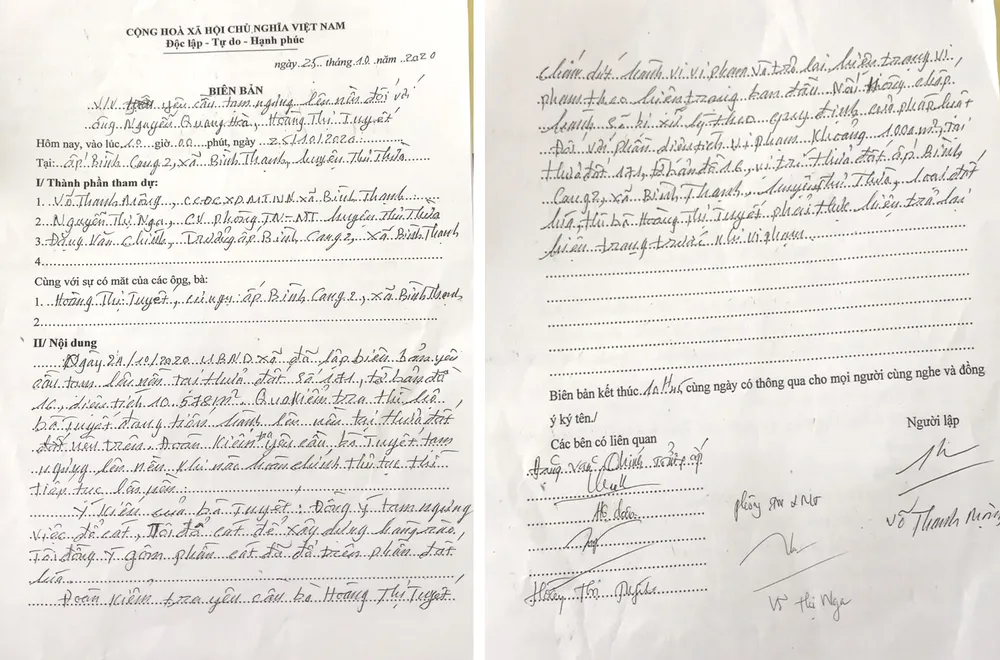 CỘNG HOÀ XÃ HỘI CHỦ NGHĨA VIỆT NAM
Độc lập - Tự do - Hạnh phúc
ngày 25 tháng 10 năm 2020
BIÊN BẢN
V/v yêu cầu tạm ngưng lên nền đối với
ông Nguyễn Quang Hà, Hoàng Thị Tuyết
Hôm nay, vào lúc 10 giờ 00 phút, ngày 25/10/2020
Tại: ấp Bình Cang 2, xã Bình Thạnh, huyện Thủ Thừa
I/ Thành phần tham dự:
1. Võ Thanh Mộng, CCĐCXDMTNN xã Bình Thạnh
2. Nguyễn Thị Nga, CV phòng TN-MT huyện Thủ Thừa
3. Đặng Văn Chinh, Trưởng ấp Bình Cang 2, xã Bình Thạnh
4.
Cùng với sự có mặt của các ông, bà:
1. Hoàng Thị Tuyết, cư ngụ: ấp Bình Cang 2, xã Bình Thạnh
2.
II/ Nội dung
Ngày 24/10/2020 UBND xã đã lập biên bản yêu
cầu tạm lên nền tại thửa đất số 171, tờ bản đồ
16, diện tích 10.578m². Qua kiểm tra thì hộ
bà Tuyết đang tiến hành lên nền tại thửa đất
nêu trên. Đoàn kiểm tra yêu cầu bà Tuyết tạm
ngưng lên nền khi nào hoàn chỉnh thủ tục thì
tiếp tục lên nền.
Ý kiến của bà Tuyết: Đồng ý tạm ngưng
việc đổ cát, Tôi đổ cát để xây dựng hàng rào,
Tôi đồng ý gom phần cát đã đổ trên phần đất
lúa
Đoàn kiểm tra yêu cầu bà Hoàng Thị Tuyết
chấm dứt hành vi vi phạm và trả lại hiện trạng vi
phạm theo hiện trạng ban đầu. Nếu không chấp
hành sẽ bị xử lý theo quy định của pháp luật
Đối với phần diện tích vi phạm khoảng 100m², tại
thửa đất 171, tờ bản đồ 16, vị trí thửa đất ấp Bình
Cang 2, xã Bình Thạnh, huyện Thủ Thừa, loại đất
lúa, thì bà Hoàng Thị Tuyết phải thực hiện trả lại
hiện trạng trước khi vi phạm
Biên bản kết thúc 10h45 cùng ngày có thông qua cho mọi người cùng nghe và đồng
ý ký tên./
Các bên có liên quan
Người lập
Đặng Văn Chinh Trưởng ấp
phòng TN & MT
Võ Thanh Mộng
Thị Nga